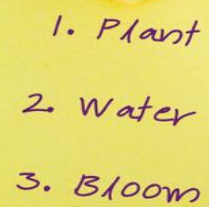 1. Plant
2. Water
3. Bloom